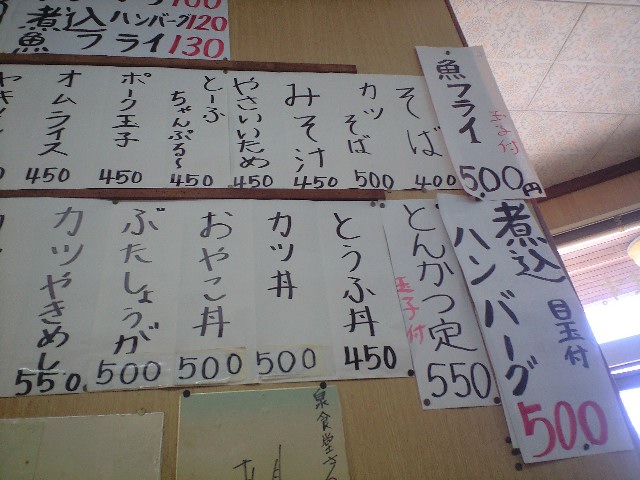 煮込ハンバーグ120
魚フライ130
魚フライ
玉子付
500円
そば
400
カツそば
500
みそ汁
450
やさいいため
450
とーふちゃんぷるー
450
ポーク玉子
450
オムライス
450
煮込ハンバーグ
目玉付
500
とんかつ定
玉子付
550
とうふ丼
450
カツ丼
500
おやこ丼
500
ぶたしょうが
500
カツやきめし
550
泉食堂さん